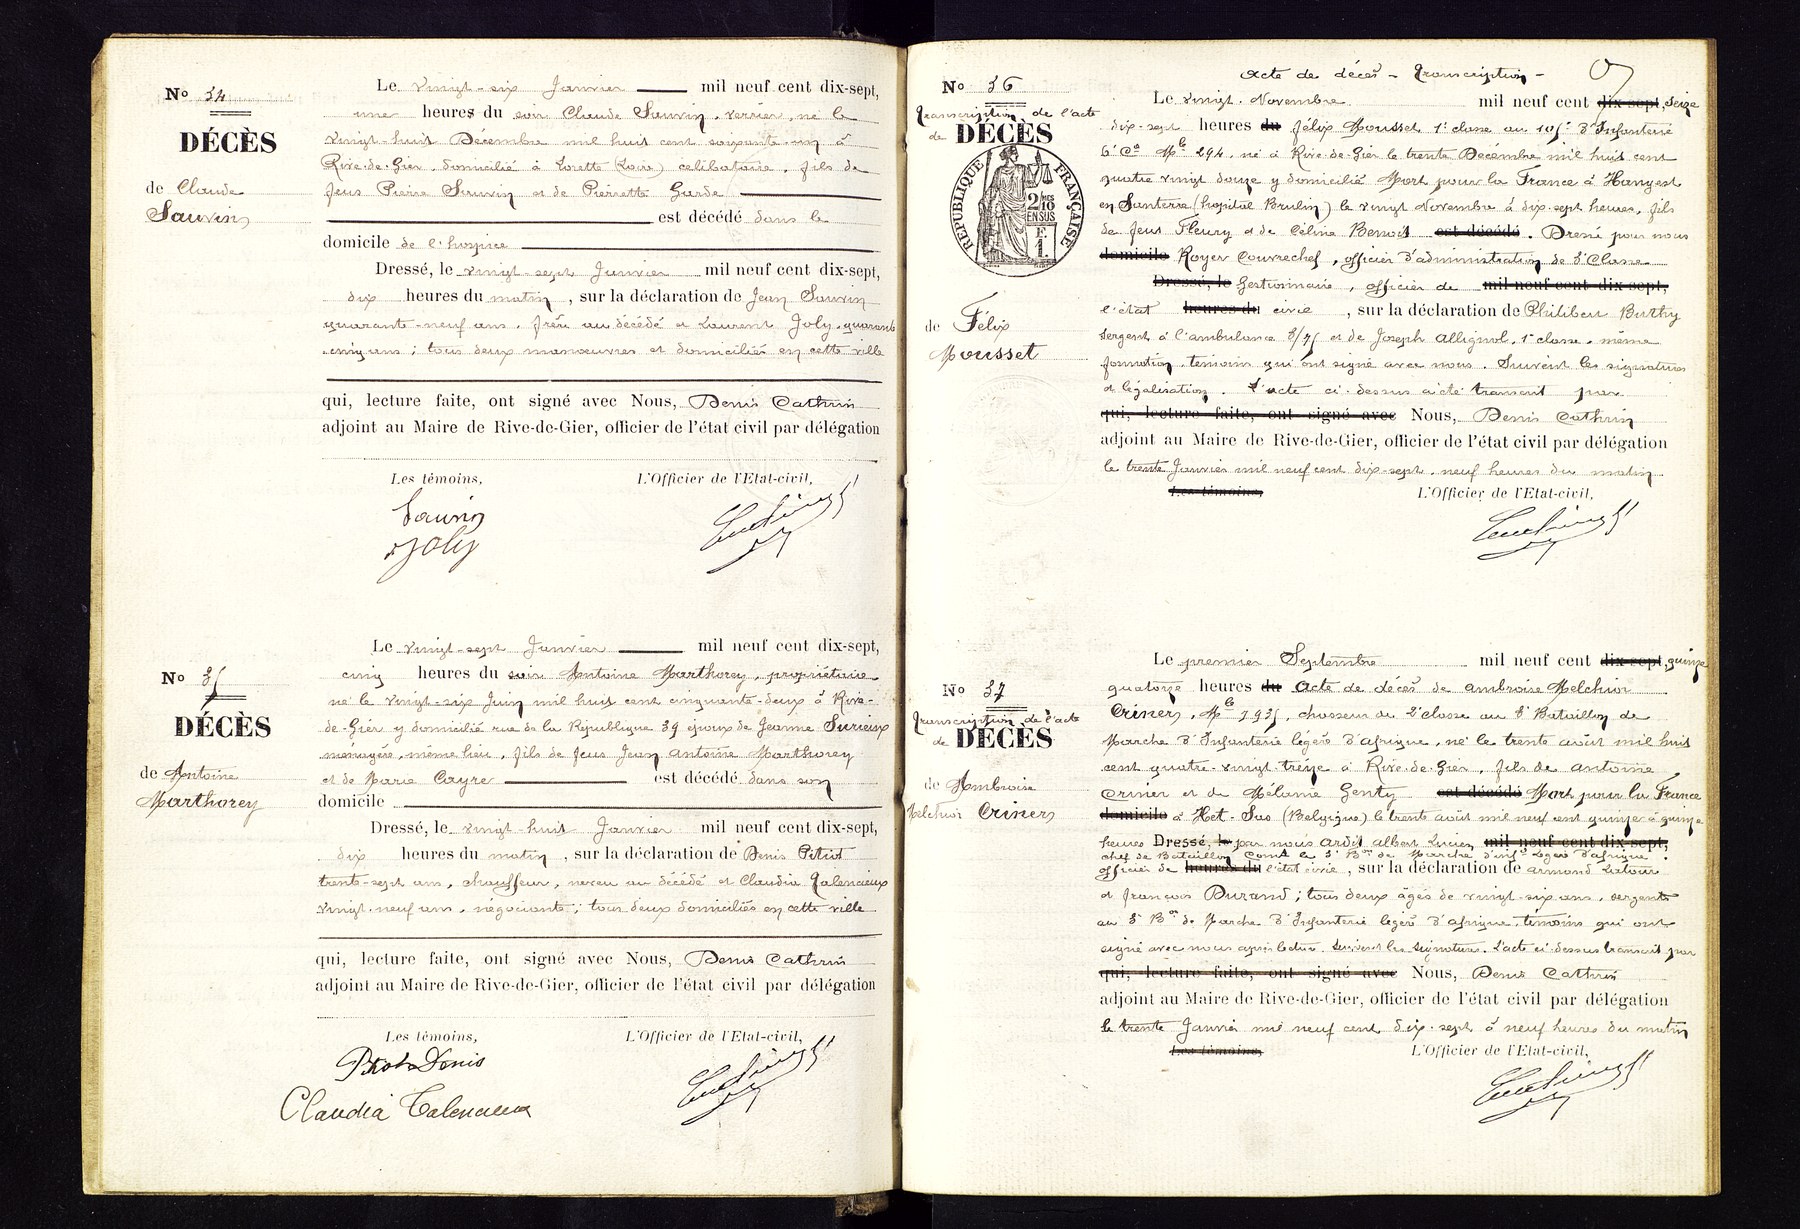 N° 34
DÉCÈS
de Claude
Sauvin
Le vingt-six Janvier mil neuf cent dix-sept,
une heures du soir Claude Sauvin, verrier, né le
vingt-huit Décembre mil huit cent soixante-un à
Rive-de-Gier, domicilié à Lorette (Loire) célibataire, fils de
feus Pierre Sauvin et de Pierrette Garde
est décédé dans le
domicile de l'hospice
Dressé, le vingt-sept Janvier mil neuf cent dix-sept,
dix heures du matin, sur la déclaration de Jean Sauvin
quarante-neuf ans, frère au décédé et Laurent Joly, quarante
cinq ans ; tous deux manœuvres et domiciliés en cette ville
qui, lecture faite, ont signé avec Nous, Denis Cathrin
adjoint au Maire de Rive-de-Gier, officier de l'état civil par délégation
Les témoins, L'Officier de l'Etat-civil,
Sauvin
Joly
N° 35
DÉCÈS
de Antoine
Marthorey
Le vingt-sept Janvier mil neuf cent dix-sept,
cinq heures du soir Antoine Marthorey, propriétaire
né le vingt-six Juin mil huit cent cinquante-deux à Rive-
de-Gier y domicilié rue de la République 39 époux de Jeanne Surieux
ménagère, même lieu, fils de feus Jean Antoine Marthorey
et de Marie Cayre est décédé dans son
domicile
Dressé, le vingt-huit Janvier mil neuf cent dix-sept,
dix heures du matin, sur la déclaration de Denis Pitiot
trente-sept ans, chauffeur, neveu au décédé et Claudia Talencieux
vingt-neuf ans, négociante ; tous deux domiciliés en cette ville
qui, lecture faite, ont signé avec Nous, Denis Cathrin
adjoint au Maire de Rive-de-Gier, officier de l'état civil par délégation
Les témoins, L'Officier de l'Etat-civil,
Denis
Claudia Talencieux
Acte de décès - Transcription -
N° 36
Transcription de l'acte
de DÉCÈS
RÉPUBLIQUE FRANÇAISE
2/10 EN SUS
de Félix
Mousset
Le vingt Novembre mil neuf cent dix-sept, seize
dix-sept heures du Félix Mousset 1e classe au 105e d'Infanterie
6e Cie Mle 294, né à Rive-de-Gier le trente Décembre mil huit cent
quatre vingt douze y domicilié Mort pour la France à Hangest
en Santerre (hopital Brulin) le vingt Novembre à dix-sept heures, fils
de feus Fleury et de Céline Benoit est décédé. Dressé par nous
domicile Royer Couvrechef, officier d'administration de 3e Classe
Dressé, le Gestionnaire, officier de mil neuf cent dix-sept,
l'état heures du civil, sur la déclaration de Philibert Buthy
sergent à l'ambulance 8/75 et de Joseph Allignol, 1e classe, même
formation, témoins qui ont signé avec nous. Suivent les signatures
et légalisation. L'acte ci-dessus a été transcrit par
qui, lecture faite, ont signé avec Nous, Denis Cathrin
adjoint au Maire de Rive-de-Gier, officier de l'état civil par délégation
le trente Janvier mil neuf cent dix-sept, neuf heures du matin
Les témoins, L'Officier de l'Etat-civil,
N° 37
Transcription de l'acte
de DÉCÈS
de Ambroise
Melchior Criner
Le premier Septembre mil neuf cent dix-sept, quinze
quatorze heures du Acte de décès de Ambroise Melchior
Criner, Mle 7935, chasseur de 2e classe au 3e Bataillon de
Marche d'Infanterie légère d'Afrique, né le trente août mil huit
cent quatre-vingt-treize à Rive-de-Gier, fils de Antoine
Criner et de Mélanie Genty est décédé Mort pour la France
domicile à Het-Sas (Belgique) le trente août mil neuf cent quinze à quinze
heures Dressé, le par nous Ardit Albert Lucien mil neuf cent dix-sept,
chef de Bataillon Comt le 3e Bon de Marche d'Infie Légère d'Afrique.
officier de heures du l'état civil, sur la déclaration de Armand Latour
et François Durand ; tous deux âgés de vingt-six ans, sergents
au 3e Bon de Marche d'Infanterie légère d'Afrique, témoins qui ont
signé avec nous après lecture. Suivent les signatures. L'acte ci-dessus transcrit par
qui, lecture faite, ont signé avec Nous, Denis Cathrin
adjoint au Maire de Rive-de-Gier, officier de l'état civil par délégation
le trente Janvier mil neuf cent dix-sept à neuf heures du matin
Les témoins, L'Officier de l'Etat-civil,